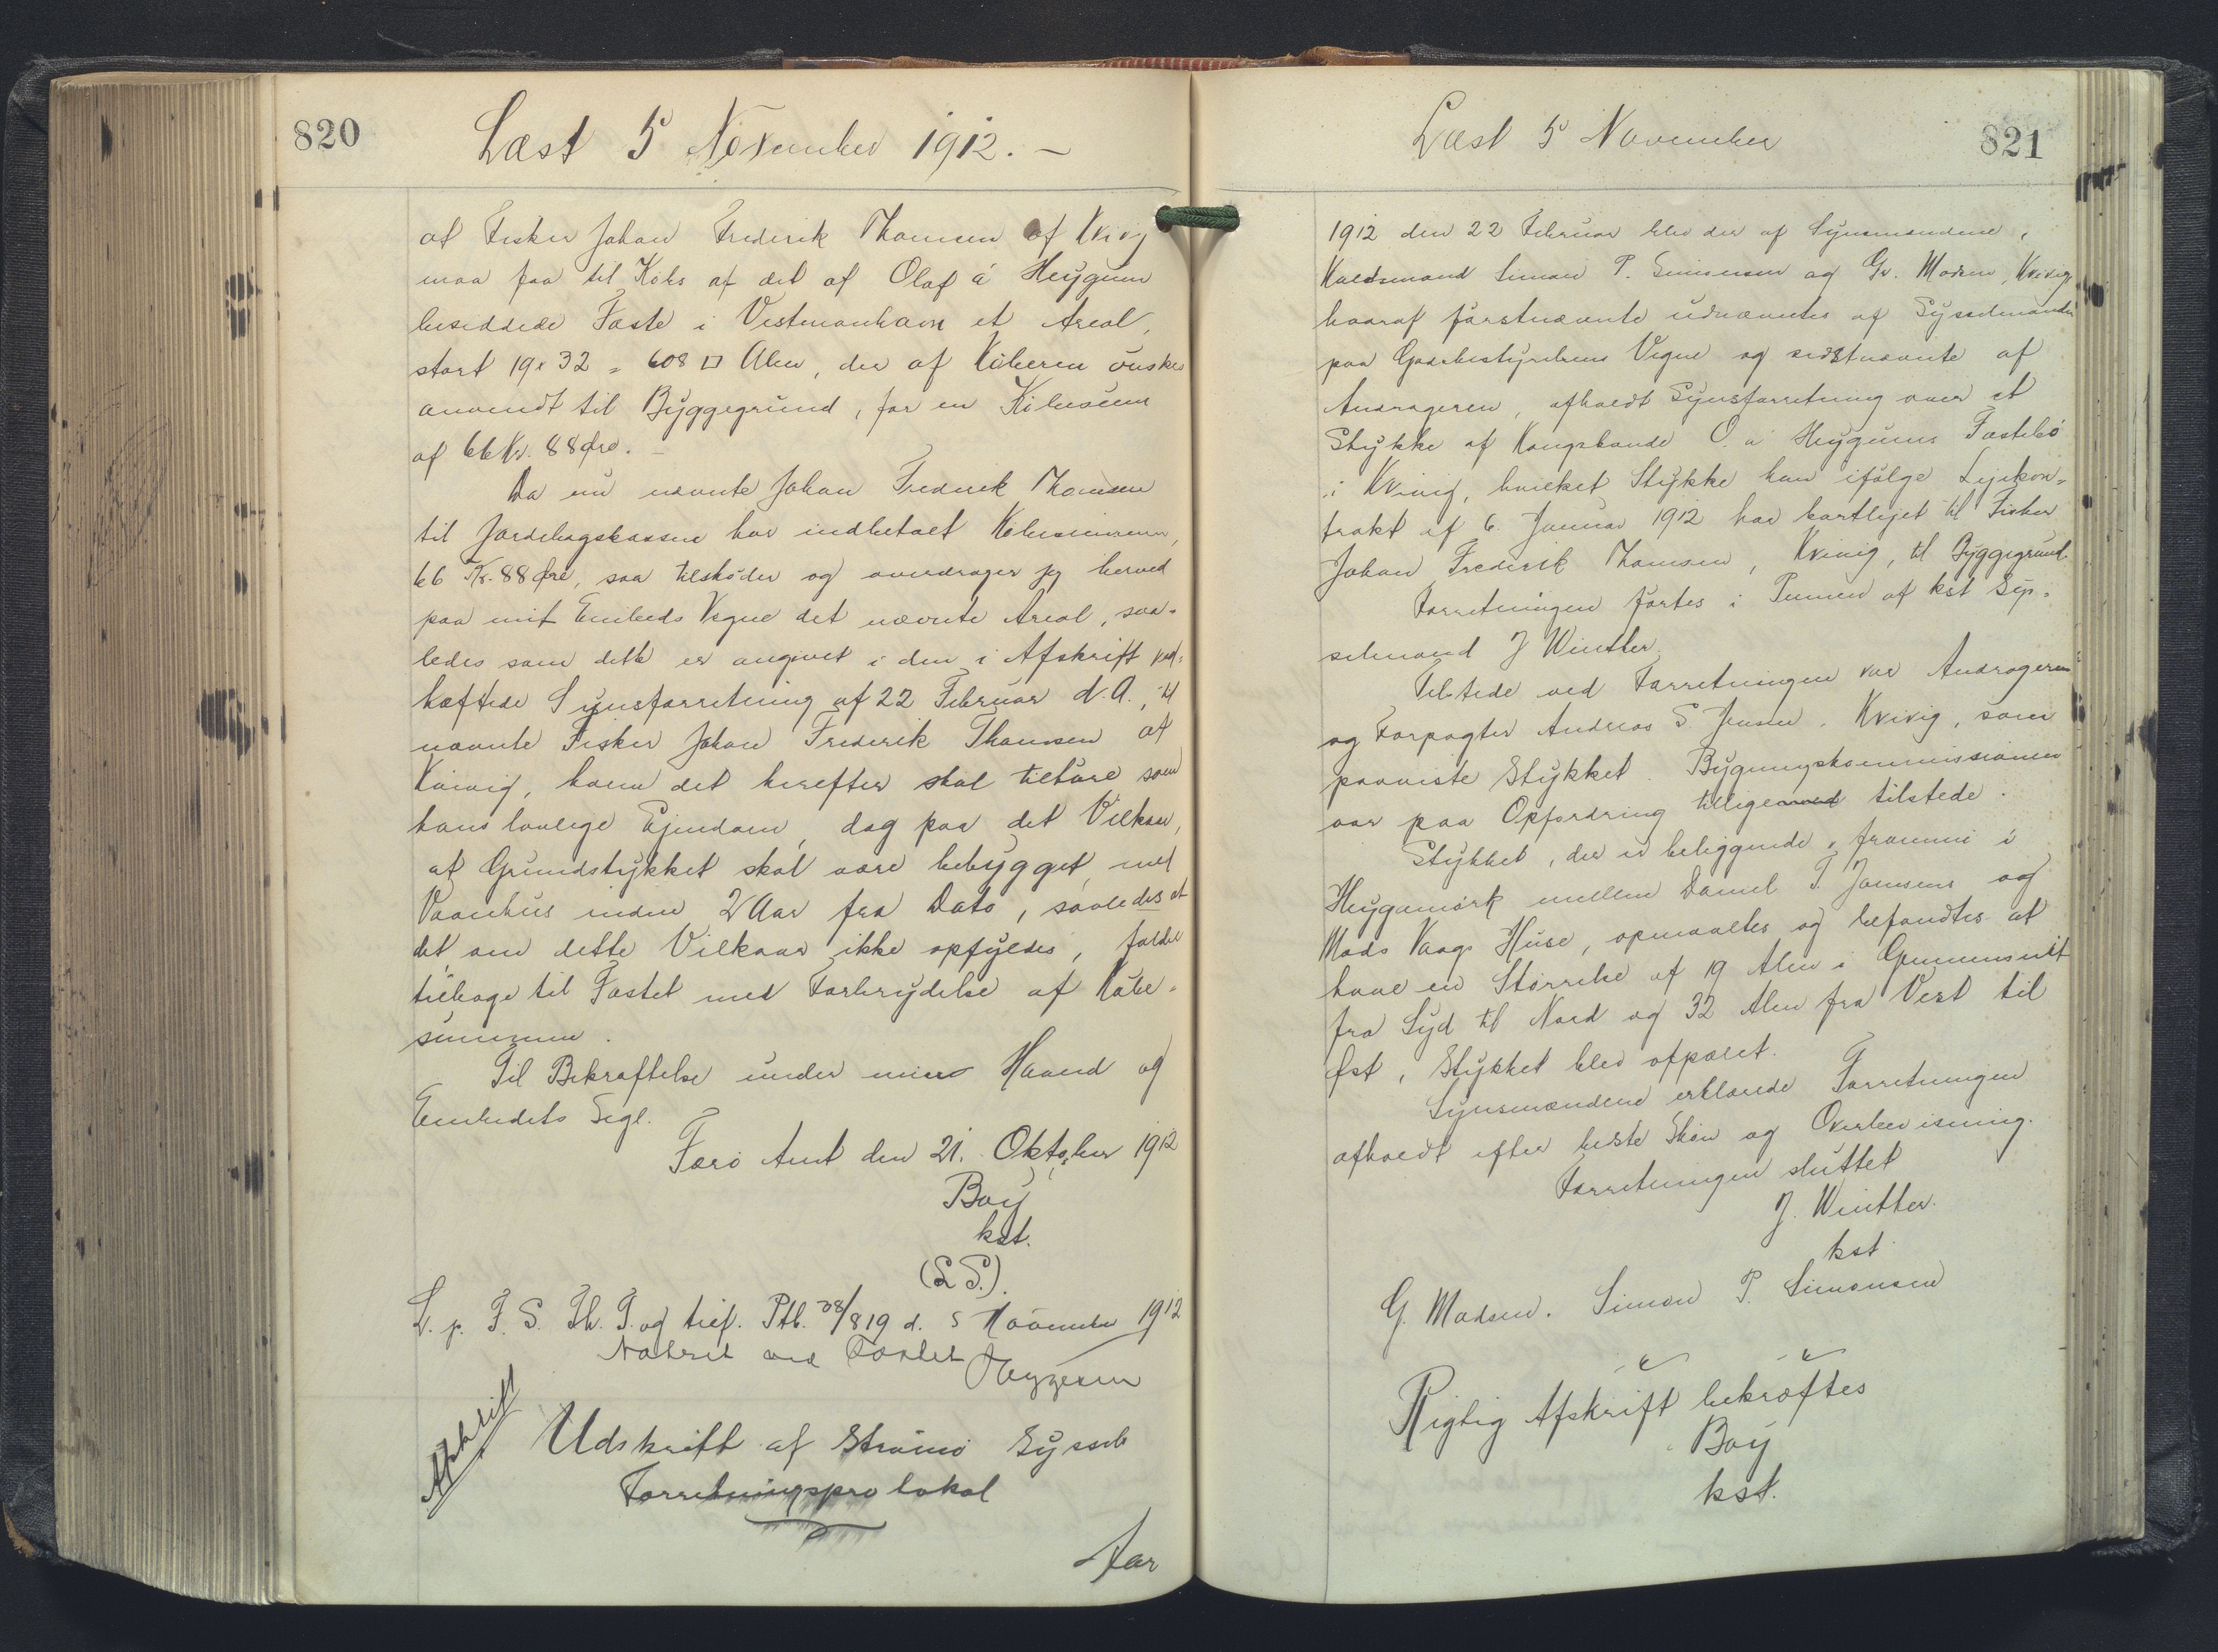 820
Læst 5 November 1912. –
at Fisker Johan Frederik Thomsen af Kvivig
maa faa til Köbs af det af Olaf á Heygum
besiddede Fæste i Vestmanhavn et Areal,
stort 19 x 32 = 608 □ Alen, der af Köberen önskes
anvendt til Byggegrund, for en Köbesum
af 66 Kr. 88 Øre. –
Da nu nævnte Johan Frederik Thomsen
til Jordebogskassen har indbetalt Köbesummen,
66 Kr. 88 Øre, saa tilsköder og overdrager jeg herved
paa mit Embeds Vegne det nævnte Areal, saa-
ledes som dette er angivet i den i Afskrift ved-
hæftede Synsforretning af 22 Februar d.A., til
nævnte Fisker Johan Frederik Thomsen af
Kvivig, hvem det herefter skal tilhöre som
hans lovlige Ejendom, dog paa det Vilkaar,
at Grundstykket skal være bebygget med
Vaanhus inden 2 Aar fra Dato, saaledes at
det, om dette Vilkaar ikke opfyldes, falder
tilbage til Fæstet med Forbrydelse af Köbe-
summen.
Til Bekræftelse under min Haand og
Embedets Segl.
Færö Amt den 21. Oktober 1912
Bøy
kst.
(L S.).
L. p. F. S. Th. T. og tilf. Ptb. 38/819 d. 5 November 1912
Noteret ved Fæstet
Afskrift
Udskrift af Strömö Syssels
Forretningsprotokol
Aar
Læst 5 November
821
1912 den 22 Februar blev der af Synsmændene,
Valdsmand Simon P. Simonsen og Gr. Madsen, Kvivig
hvoraf förstnævnte udnævntes af Sysselmanden
paa Godsbestyrelsens Vegne og sidstnævnte af
Andrageren, afholdt Synsforretning over et
Stykke af Kongsbonde O. á Heygums Fæstebö
i Kvivig, hvilket Stykke han ifölge Lejekon-
trakt af 6. Januar 1912 har bortlejet til Fisker
Johan Frederik Thomsen, Kvivig, til Byggegrund.
Forretningen førtes i Pennen af kst Sys-
selmand J Winther.
Tilstede ved Forretningen var Andrageren
og Forpagter Andreas S. Jensen, Kvivig, som
paaviste Stykket. Bygningskommissionen
var paa Opfordring tilligemed tilstede.
Stykket, der er beliggende frammi i
Heygamörk mellem Daniel T. Joensens og
Mads Vaags Huse, opmaaltes og befandtes at
have en Störrelse af 19 Alen i Gennemsnit
fra Syd til Nord og 32 Alen fra Vest til
Øst, Stykket blev afpælet.
Synsmændene erklærede Forretningen
afholdt efter bedste Skön og Overbevisning.
Forretningen sluttet
J. Winther.
kst
G. Madsen. Simon P. Simonsen
Rigtig Afskrift bekræftes
Bøy
kst.